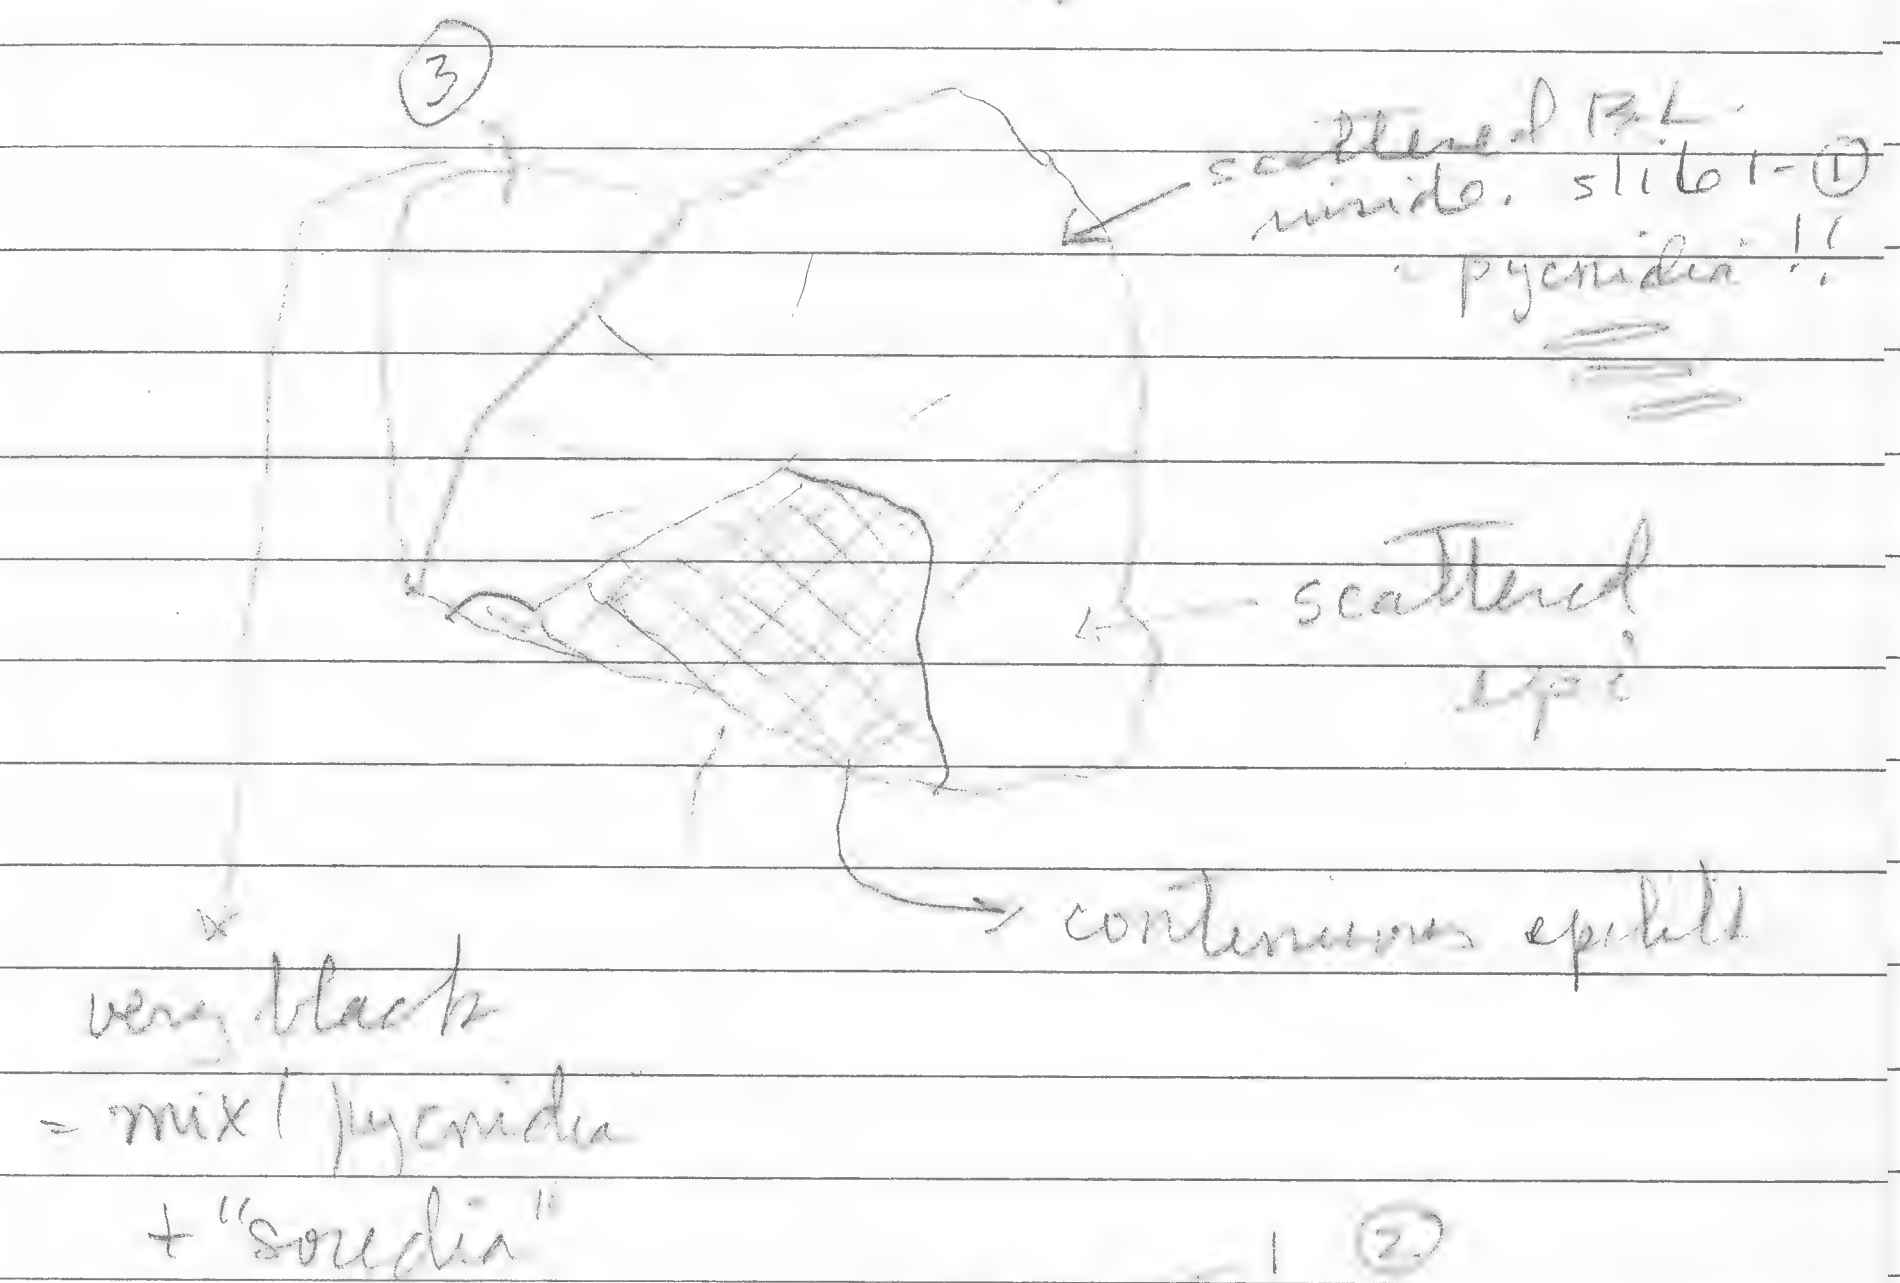 ③
scattered B.L.
inside. slide 1-①
- pycnidia!!
scattered
epi
continuous epilith
very black
= mix / pycnidia
+ "soredia"
②